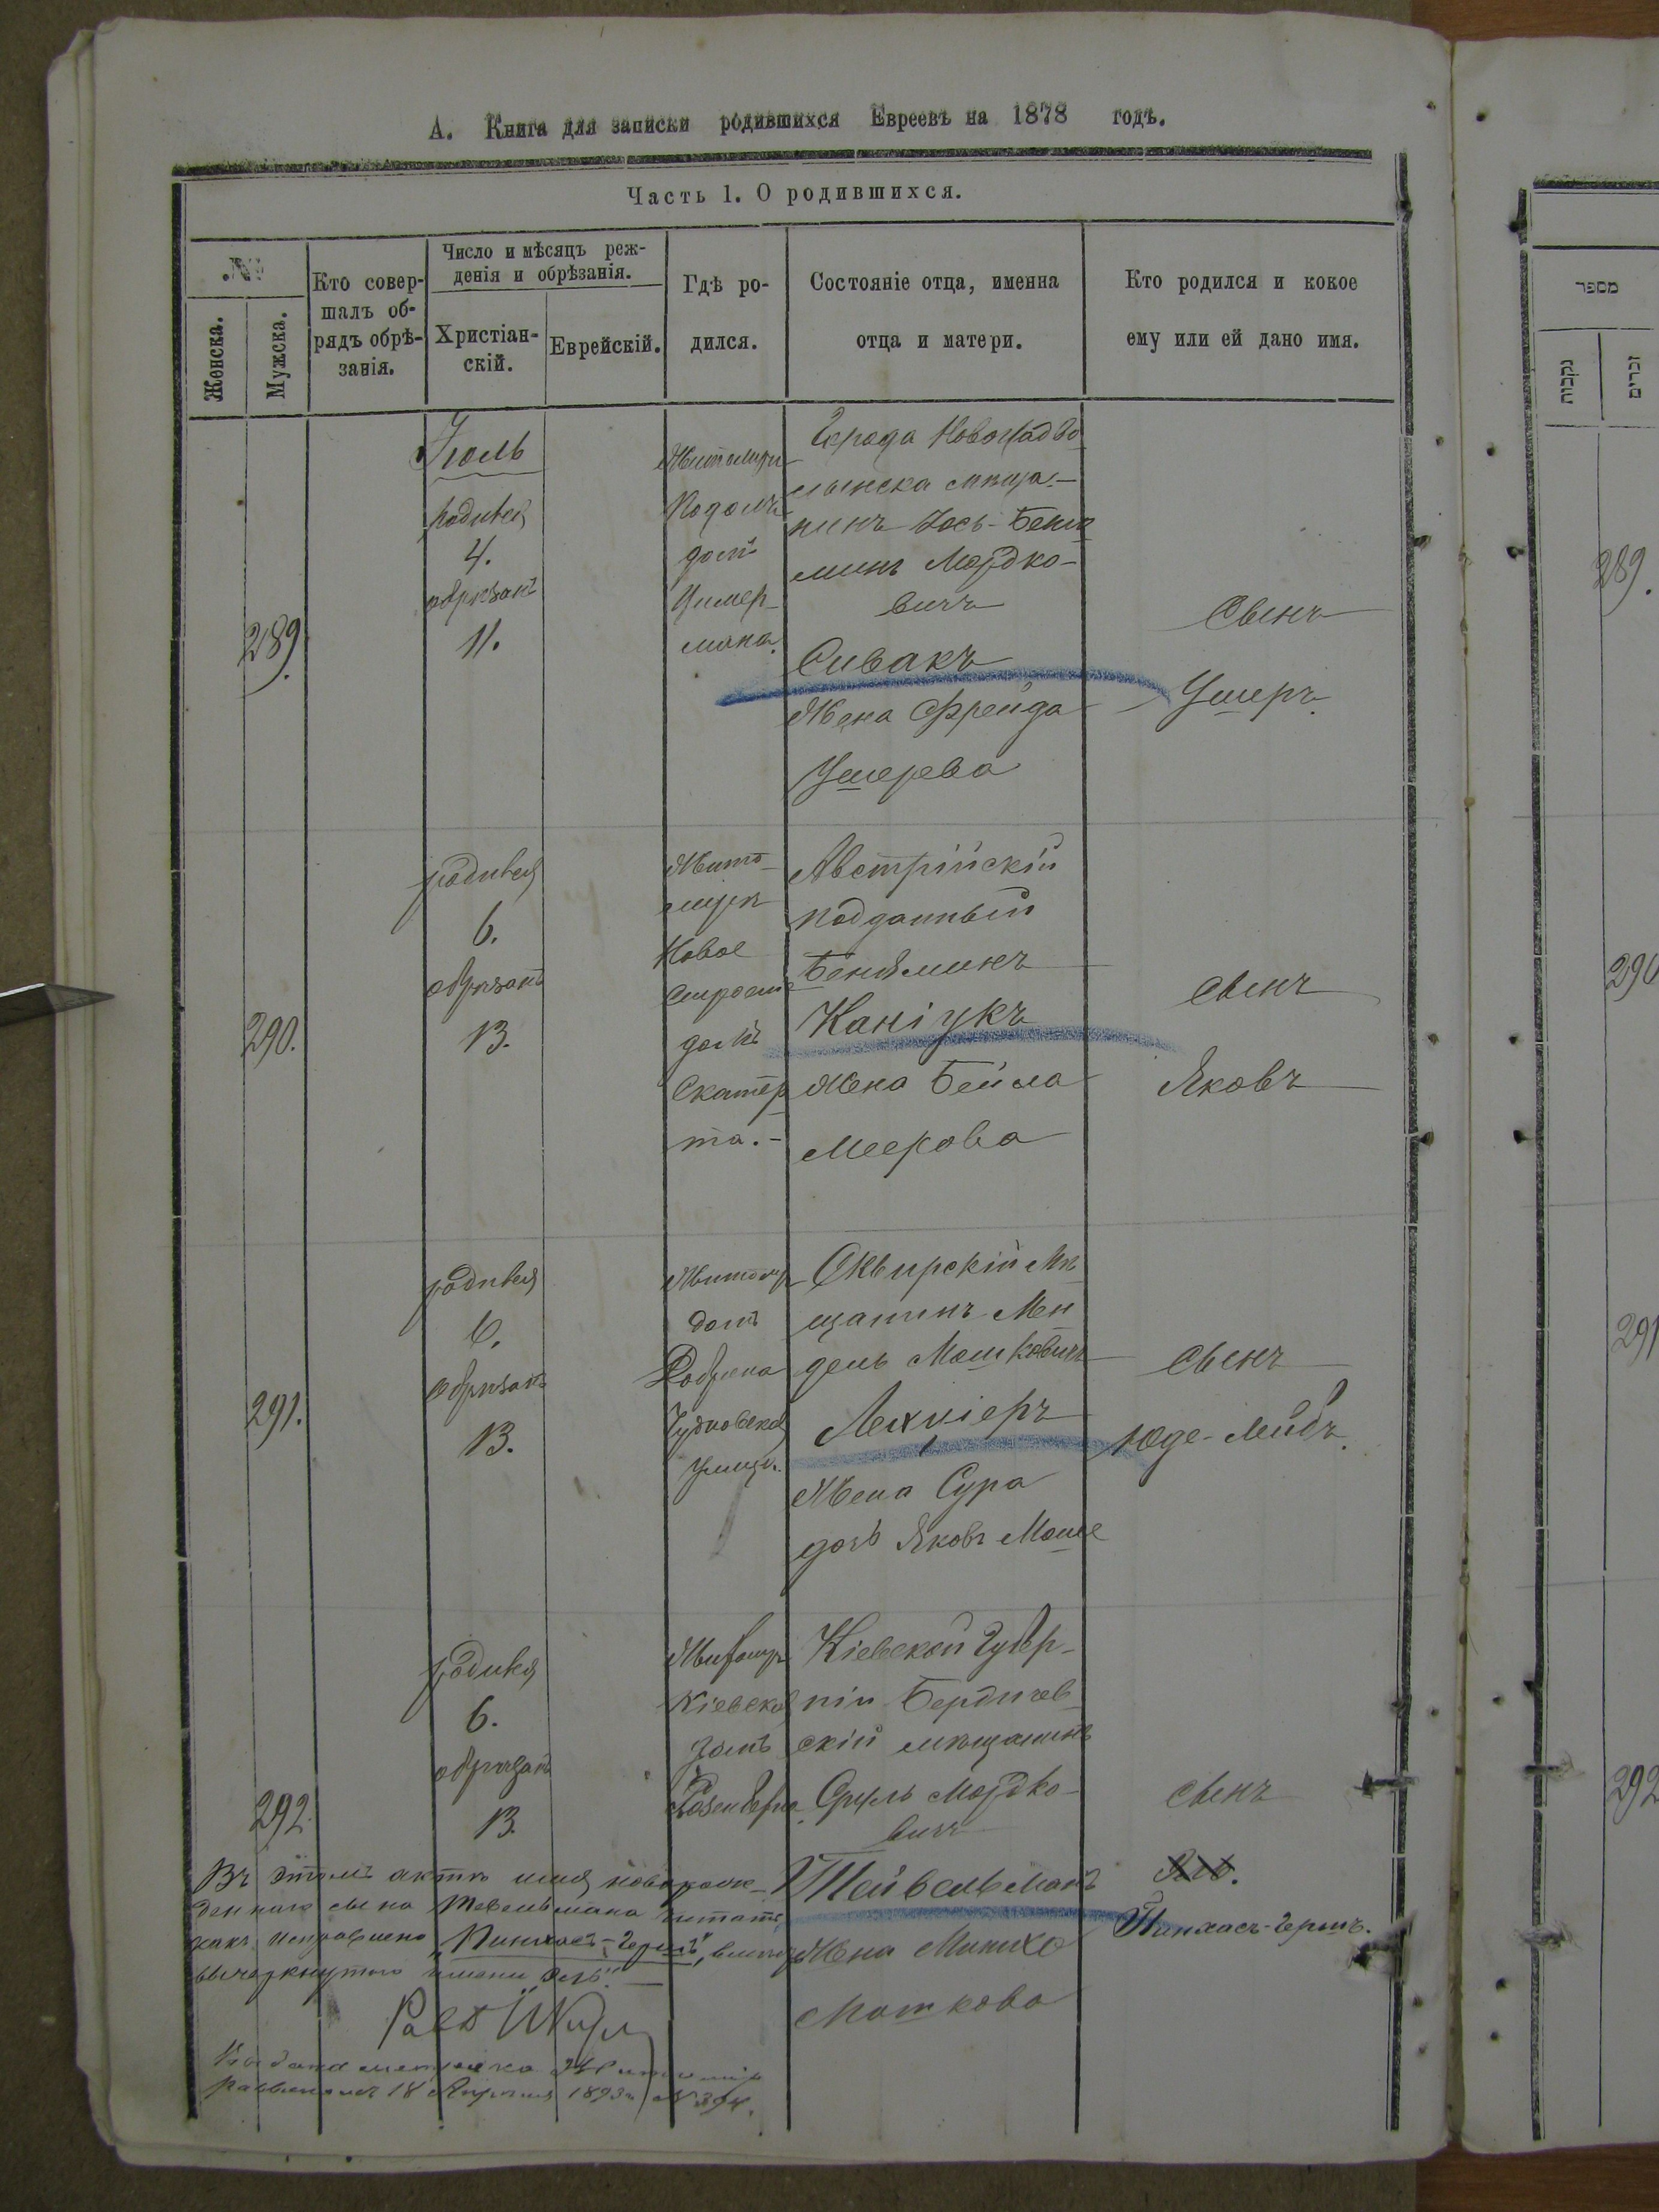 А. Книга для записки родившихся Евреевъ на 1878 годъ.
Часть 1. О родившихся.
№
Женска.
Мужска.
Кто совер-
шалъ об-
рядъ обрѣ-
занія.
Число и мѣсяцъ реж-
денія и обрѣзанія.
Христіан-
скій.
Еврейскій.
Гдѣ ро-
дился.
Состояніе отца, именна
отца и матери.
Кто родился и кокое
ему или ей дано имя.
289.
Іюль
родився
4.
обрѣзанъ
11.
Житомиръ
Подолъ
домъ
Цимер-
мана.
Города Новоградво
лынска мѣща-
нинъ Іось-Беня
минъ Мордко-
вичъ
Сивакъ
Жена Фрейда
Ушерева
Сынъ
Ушеръ.
290.
родився
6.
обрѣзанъ
13.
Жито-
миръ
Новое
домъ
Скатер
та.-
Австрійскій
подданный
Беняминъ
Каніукъ
Жена Бейла
Меерова
сынъ
Яковъ
291.
родився
6.
обрѣзанъ
13.
Житомиръ
домъ
Чудновская
улица.
Сквирскій мѣ
щанинъ Мен
дель Мошковичъ
Жена Сура
дочь Яковъ Моше
сынъ
Юде-Лейбъ.
292.
родився
6.
обрѣзанъ
13.
Житомиръ
Кіевская
домъ
Розенберга
Кіевской Губер-
ніи Бердичев
скій мѣщанинъ
Сруль Мордко-
вичъ
Тейвельманъ
Жена
Мошкова
сынъ
Пинхасъ-Гершъ.
Въ этомъ актѣ имя новорож-
деннаго сына Тевельмана читать
какъ исправлено „Пинхасъ-Гершъ", вмѣсто
вычеркнутого имени
Выдана метрика
18 Апрѣля 1893 г. №
מספר
נקבות
זכרים
289.
290
291
292